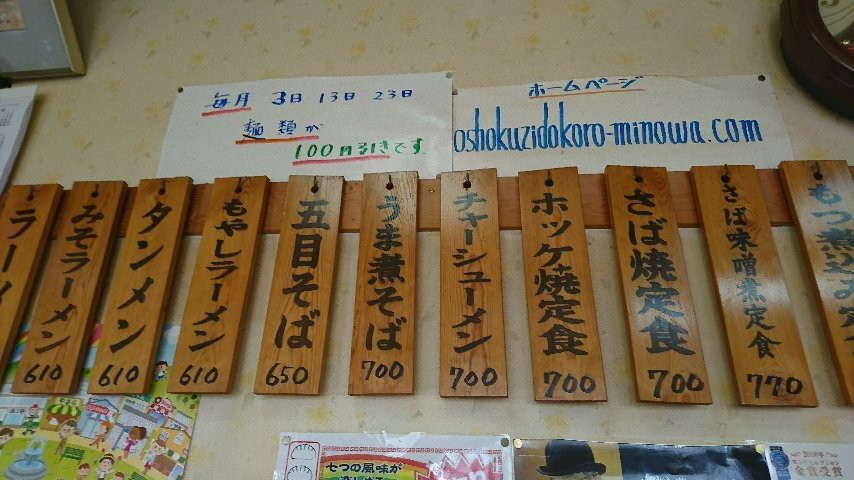 毎月 3日 13日 23日
麺類が
100円引きです
ホームページ
oshokuzidokoro-minowa.com
ラーメン
みそラーメン
610
タンメン
610
もやしラーメン
610
五目そば
650
うま煮そば
700
チャーシューメン
700
ホッケ焼定食
700
さば焼定食
700
さば味噌煮定食
770
もつ煮込み定
七つの風味が
金賞受賞